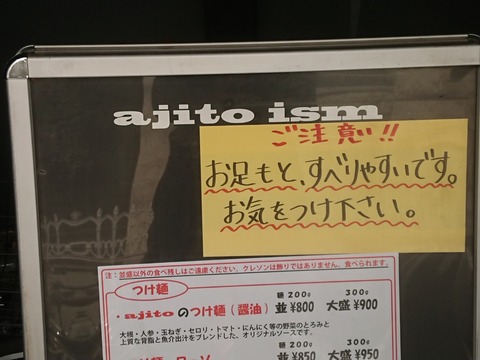 ajito ism
ご注意!!
お足もと、すべりやすいです。
お気をつけ下さい。
注：並盛以外の食べ残しはご遠慮ください。クレソンは飾りではありません。食べられます。
つけ麺
麺200g 300g
・ajitoのつけ麺（醤油） 並¥800 大盛¥900
大根・人参・玉ねぎ・セロリ・トマト・にんにく等の野菜のとろみと
上質な背脂と魚介出汁をブレンドした、オリジナルソースです。
麺200g 300g
並¥850 大盛¥950